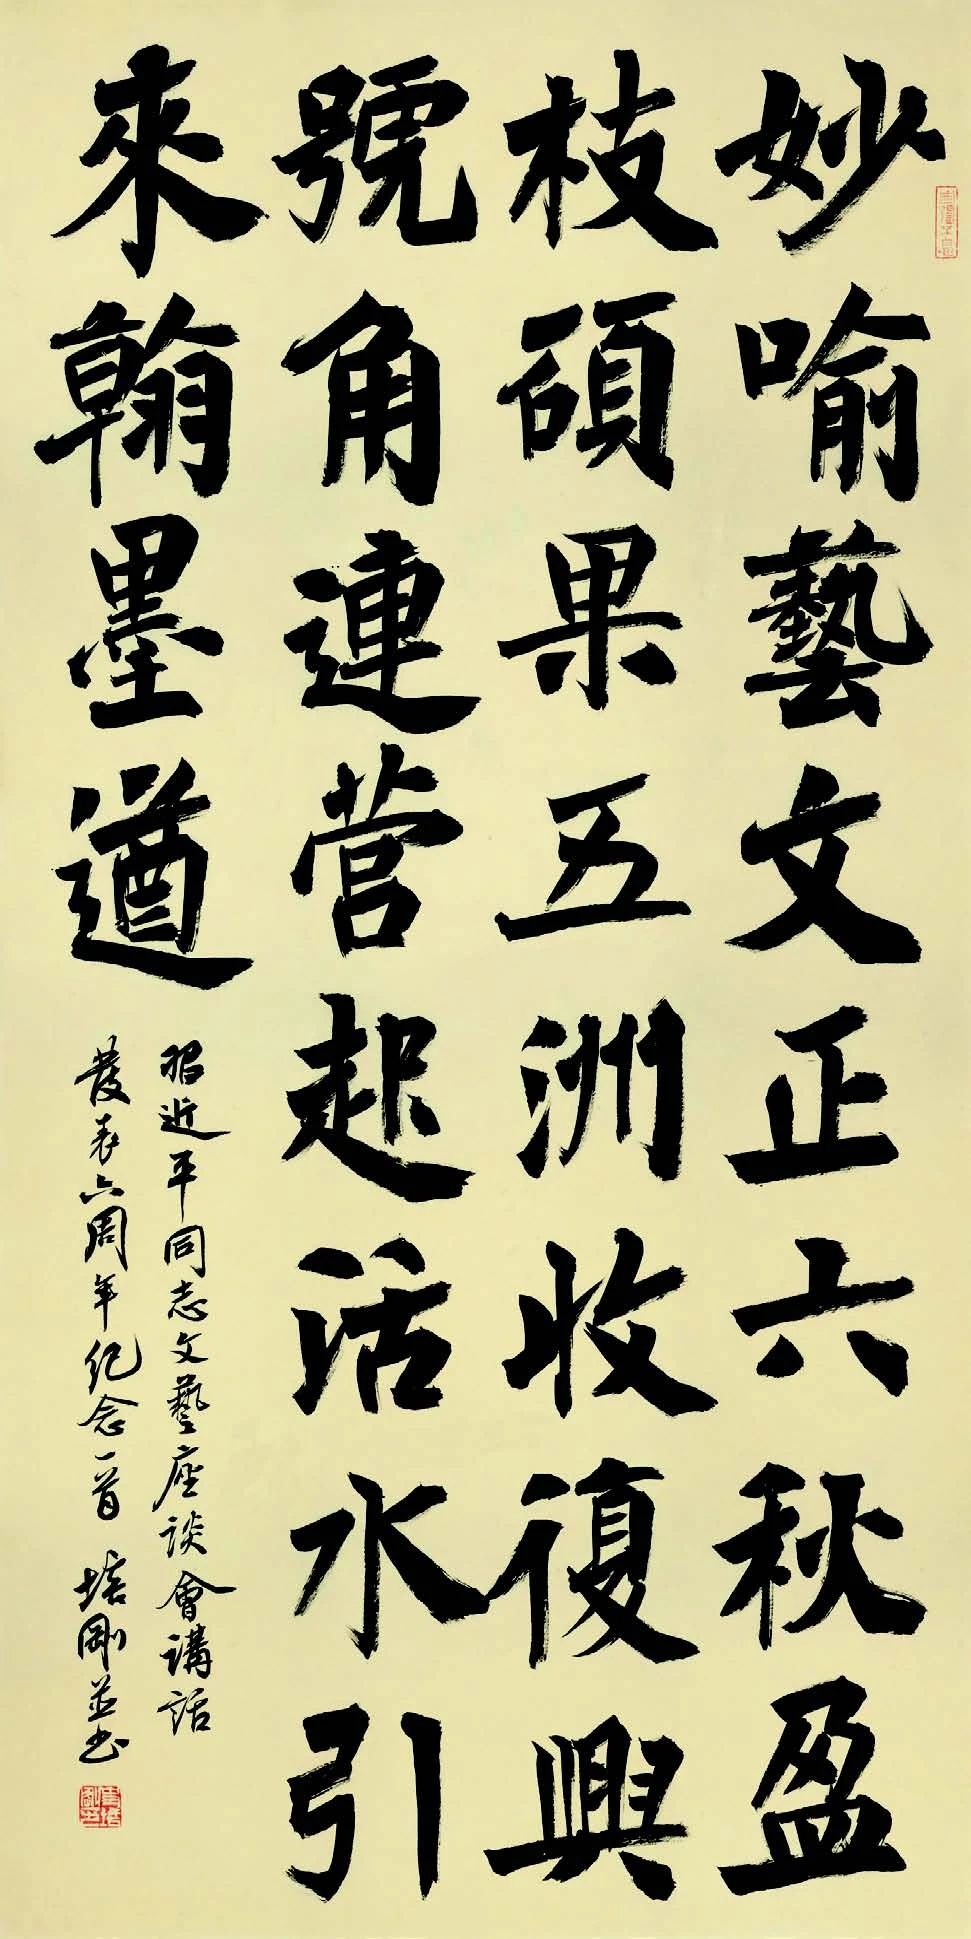 妙喻藝文正六秋盈
枝碩果五洲收復興
號角連營起活水引
來翰墨遒
習近平同志文藝座談會講話
發表六周年紀念一首 培剛並书